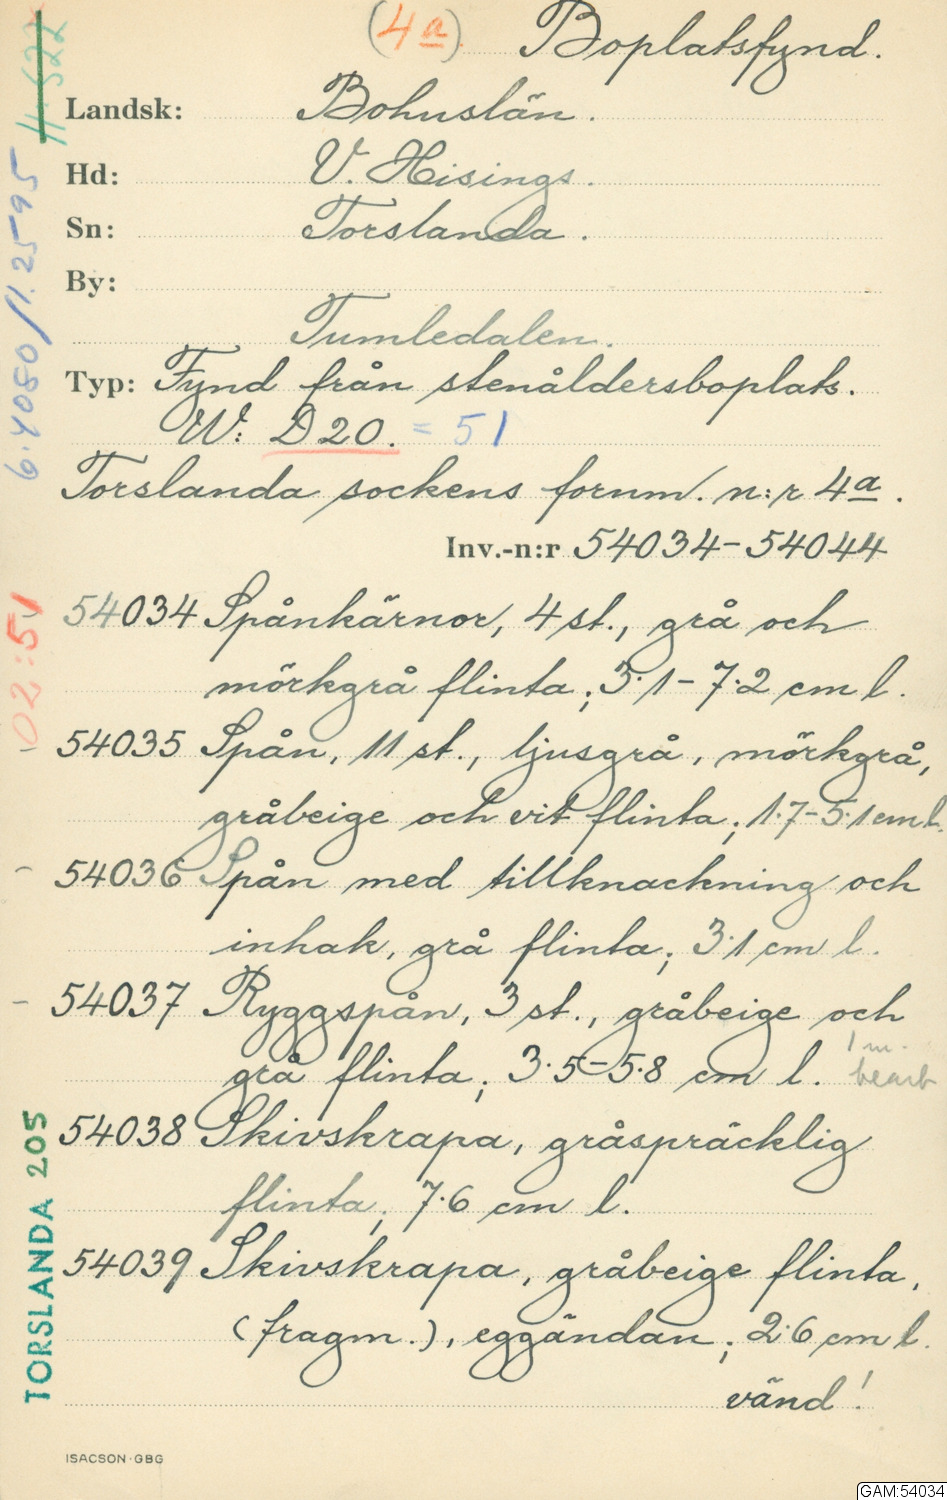 (4a). Boplatsfynd.
Landsk: Bohuslän.
Hd: V. Hisings.
Sn: Torslanda.
By:
Tumledalen.
Typ: Fynd från stenåldersboplats.
W: D 20. = 51
Torslanda sockens fornm. n:r 4a.
Inv.-n:r 54034-54044
54034 Spånkärnor, 4 st., grå och
mörkgrå flinta; 3.1-7.2 cm l.
- 54035 Spån, 11 st., ljusgrå, mörkgrå,
gråbeige och vit flinta; 1.7-5.1 cm l.
- 54036 Spån med tillknackning och
inhak, grå flinta; 3.1 cm l.
- 54037 Ryggspån, 3 st., gråbeige och
grå flinta; 3.5-5.8 cm l.
1 m.
bearb
54038 Skivskrapa, gråspräcklig
flinta; 7.6 cm l.
54039 Skivskrapa, gråbeige flinta,
(fragm.), eggändan; 2.6 cm l.
vänd!
ISACSON·GBG
6.4050/1.2595
02:51
TORSLANDA 205
GAM:54034